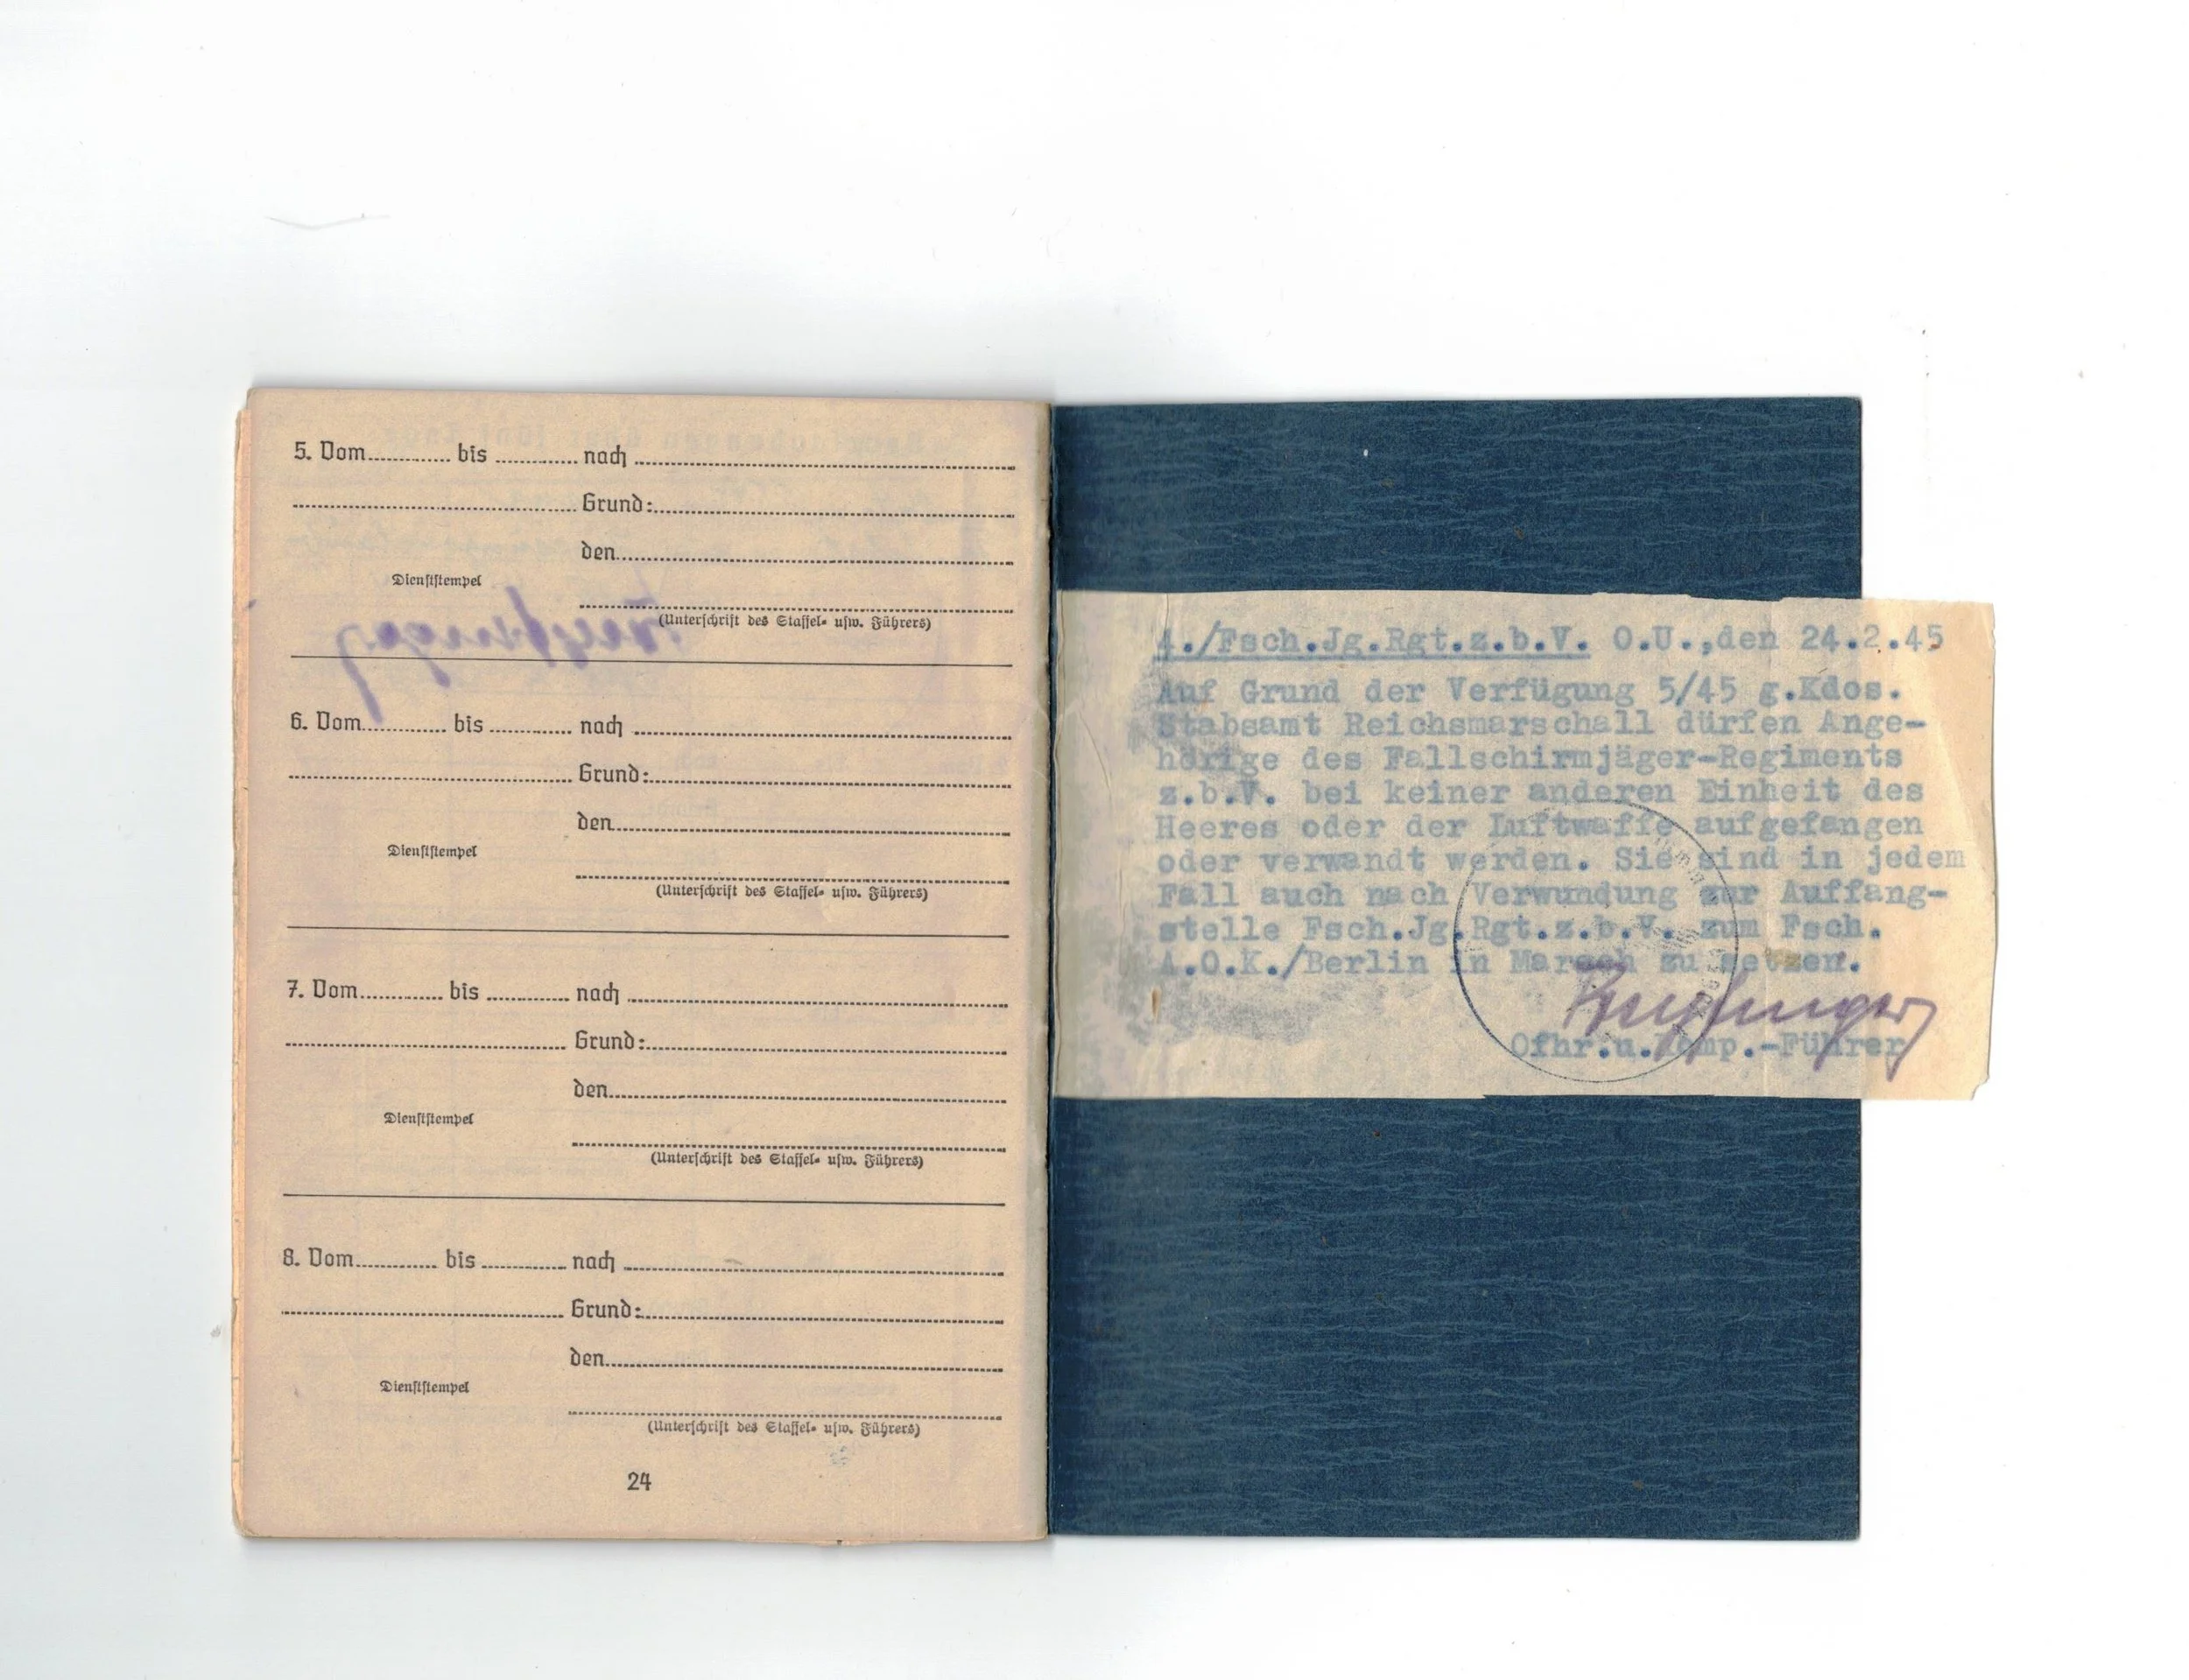 5. Vom bis nach
Grund:
den
Dienststempel
(Unterschrift des Staffel- usw. Führers)
6. Vom bis nach
Grund:
den
Dienststempel
(Unterschrift des Staffel- usw. Führers)
7. Vom bis nach
Grund:
den
Dienststempel
(Unterschrift des Staffel- usw. Führers)
8. Vom bis nach
Grund:
den
Dienststempel
(Unterschrift des Staffel- usw. Führers)
24
4./Fsch.Jg.Rgt.z.b.V. O.U.,den 24.2.45
Auf Grund der Verfügung 5/45 g.Kdos.
Stabsamt Reichsmarschall dürfen Ange-
hörige des Fallschirmjäger-Regiments
z.b.V. bei keiner anderen Einheit des
Heeres oder der Luftwaffe aufgefangen
oder verwandt werden. Sie sind in jedem
Fall auch nach Verwundung zur Auffang-
stelle Fsch.Jg.Rgt.z.b.V. zum Fsch.
A.O.K./Berlin in Marsch zu setzen.
Ofhr.u.Komp.-Führer